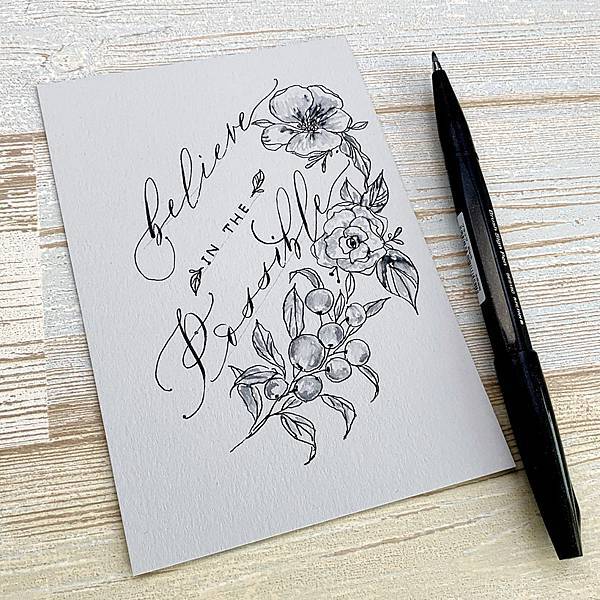 believe
IN THE
Possible